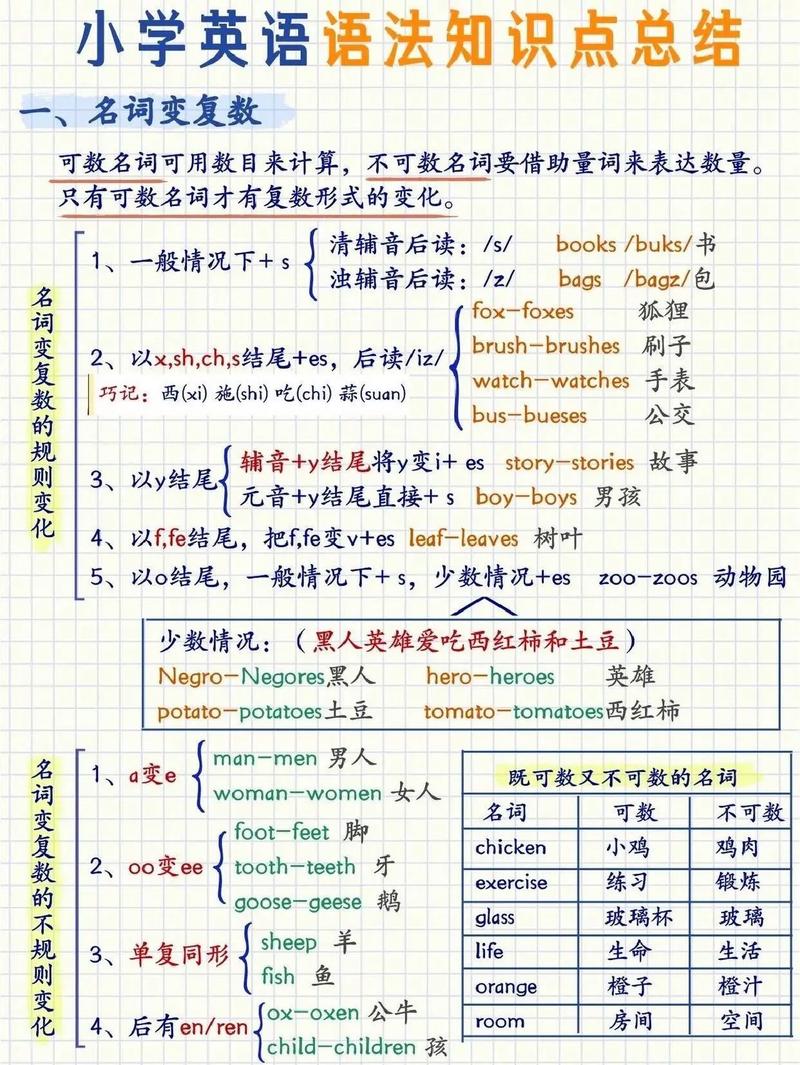 小学英语语法知识点总结
一、名词变复数
可数名词可用数目来计算，不可数名词要借助量词来表达数量。
只有可数名词才有复数形式的变化。
名词变复数的规则变化
1、一般情况下+ s
清辅音后读：/s/ books /buks/书
浊辅音后读：/z/ bags /bagz/包
2、以x,sh,ch,s结尾+es，后读/iz/
巧记：西(xi) 施(shi) 吃(chi) 蒜(suan)
fox-foxes 狐狸
brush-brushes 刷子
watch-watches 手表
bus-bueses 公交
3、以y结尾
辅音+y结尾将y变i+ es story-stories 故事
元音+y结尾直接+ s boy-boys 男孩
4、以f,fe结尾，把f,fe变v+es leaf-leaves 树叶
5、以o结尾，一般情况下+ s，少数情况+es zoo-zoos 动物园
少数情况：（黑人英雄爱吃西红柿和土豆）
Negro-Negores黑人 hero-heroes 英雄
potato-potatoes土豆 tomato-tomatoes西红柿
名词变复数的不规则变化
1、a变e
man-men 男人
woman-women 女人
2、oo变ee
foot-feet 脚
tooth-teeth 牙
goose-geese 鹅
3、单复同形
sheep 羊
fish 鱼
4、后有en/ren
ox-oxen 公牛
child-children 孩
既可数又不可数的名词
名词 可数 不可数
chicken 小鸡 鸡肉
exercise 练习 锻炼
glass 玻璃杯 玻璃
life 生命 生活
orange 橙子 橙汁
room 房间 空间